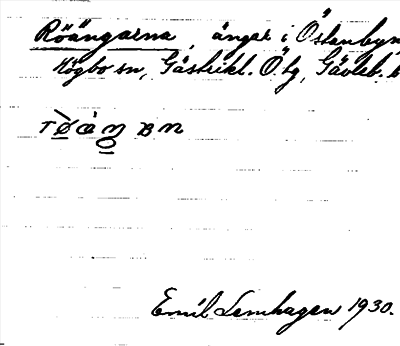 Röängarna, ängar i Östanbyn
Högbo sn, Gästrikl. Ö. tg, Gävleb.
Emil Lemhagen 1930.